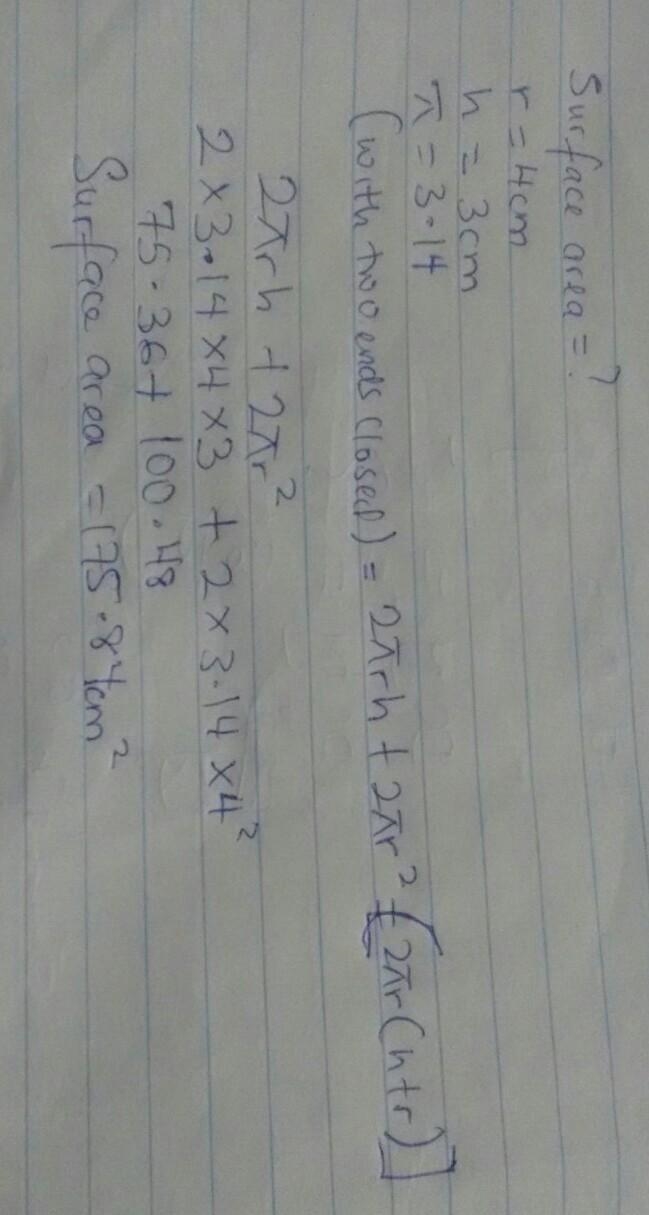 Surface area = ?
r = 4cm
h = 3cm
π = 3.14
(with two ends closed) = 2πrh + 2πr² = [2πr(h+r)]
2πrh + 2πr²
2×3.14×4×3 + 2×3.14×4²
75.36 + 100.48
Surface area = 175.84cm²